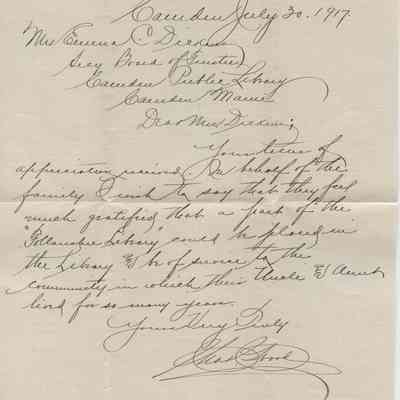 Camden July 30. 1917.
Mrs Emma C Dickens
Secy Board of Trustees
Camden Public Library
Camden Maine
Dear Mrs Dickens;
Your letter of
appreciation received. On behalf of the
family I wish to say that they feel
much gratified that a part of the
"Follansbee Library" could be placed in
the Library & be of service to the
community in which their Uncle & Aunt
lived for so many years.
Yours Very Truly
Chas C Wood